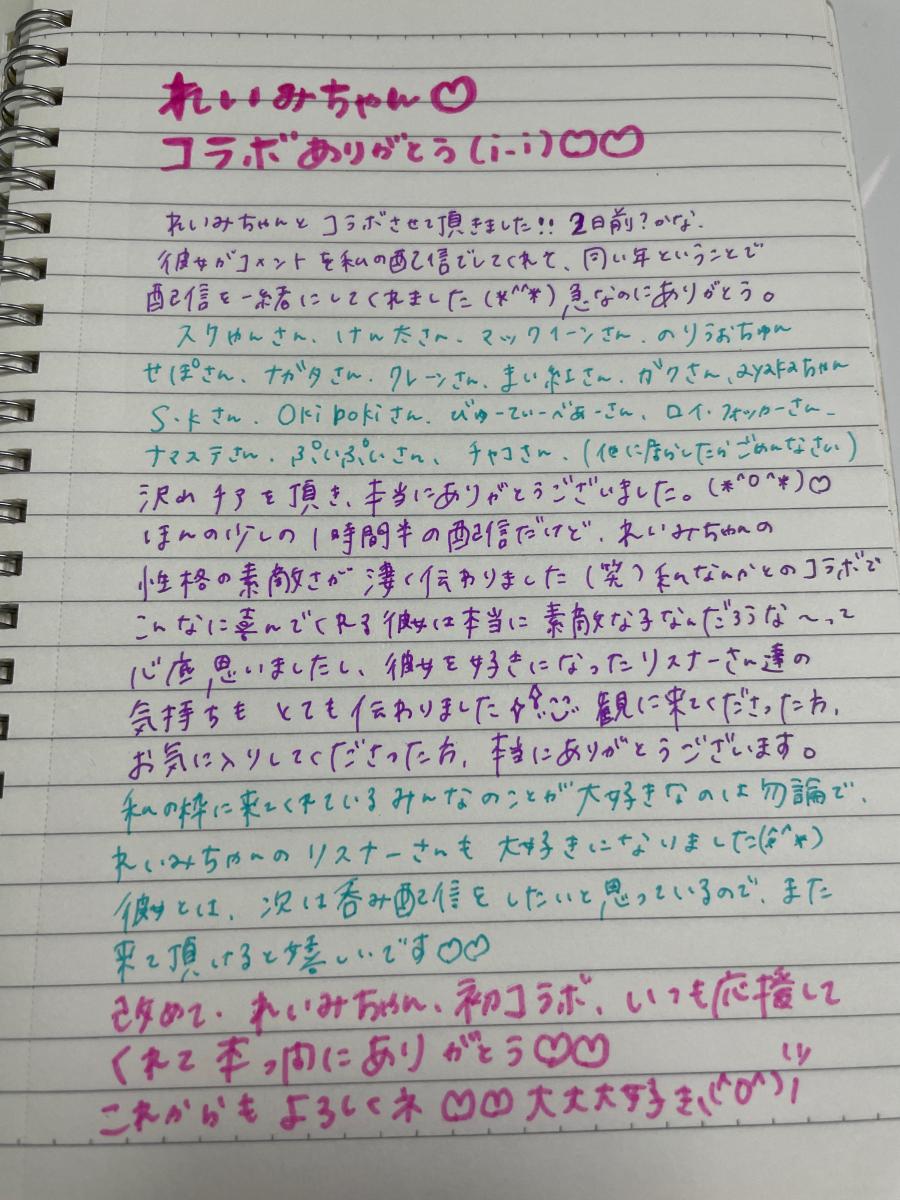 れいみちゃん♡
コラボありがとう(i-i)♡♡
れいみちゃんと コラボさせて頂きました!! 2日前?かな.
彼女がコメントを私の配信でしてくれて、同い年ということで
配信を一緒にしてくれました(*^^*) 急なのにありがとう。
スクやんさん、けん太さん、マックイーンさん、のりうおちゃん
せぽさん、ナガタさん、クレーンさん、まい紅さん、ガクさん、ayakaちゃん
S.kさん、Oki pokiさん、びゅーてぃーべあーさん、ロイ・フォッカーさん、
ナマステさん、ぷいぷいさん、チャコさん、(他に居らしたらごめんなさい)
沢山チアを頂き、本当にありがとうございました。(*^o^*)♡
ほんの少しの1時間半の配信だけど、れいみちゃんの
性格の素敵さが凄く伝わりました(笑)私なんかとのコラボで
こんなに喜んでくれる彼女は本当に素敵な子なんだろうな〜って
心底思いましたし、彼女を好きになったリスナーさん達の
気持ちも とても伝わりました 観に来てくださった方、
お気に入りしてくださった方、本当にありがとうございます。
私の枠に来てくれているみんなのことが大好きなのは勿論で、
れいみちゃんのリスナーさんも大好きになりました(*^^*)
彼女とは、次は呑み配信をしたいと思っているので、また
来て頂けると嬉しいです♡♡
改めて、れいみちゃん、初コラボ、いつも応援して
くれて本っ間にありがとう♡♡
これからもよろしくネ♡♡大大大好き(^o^)